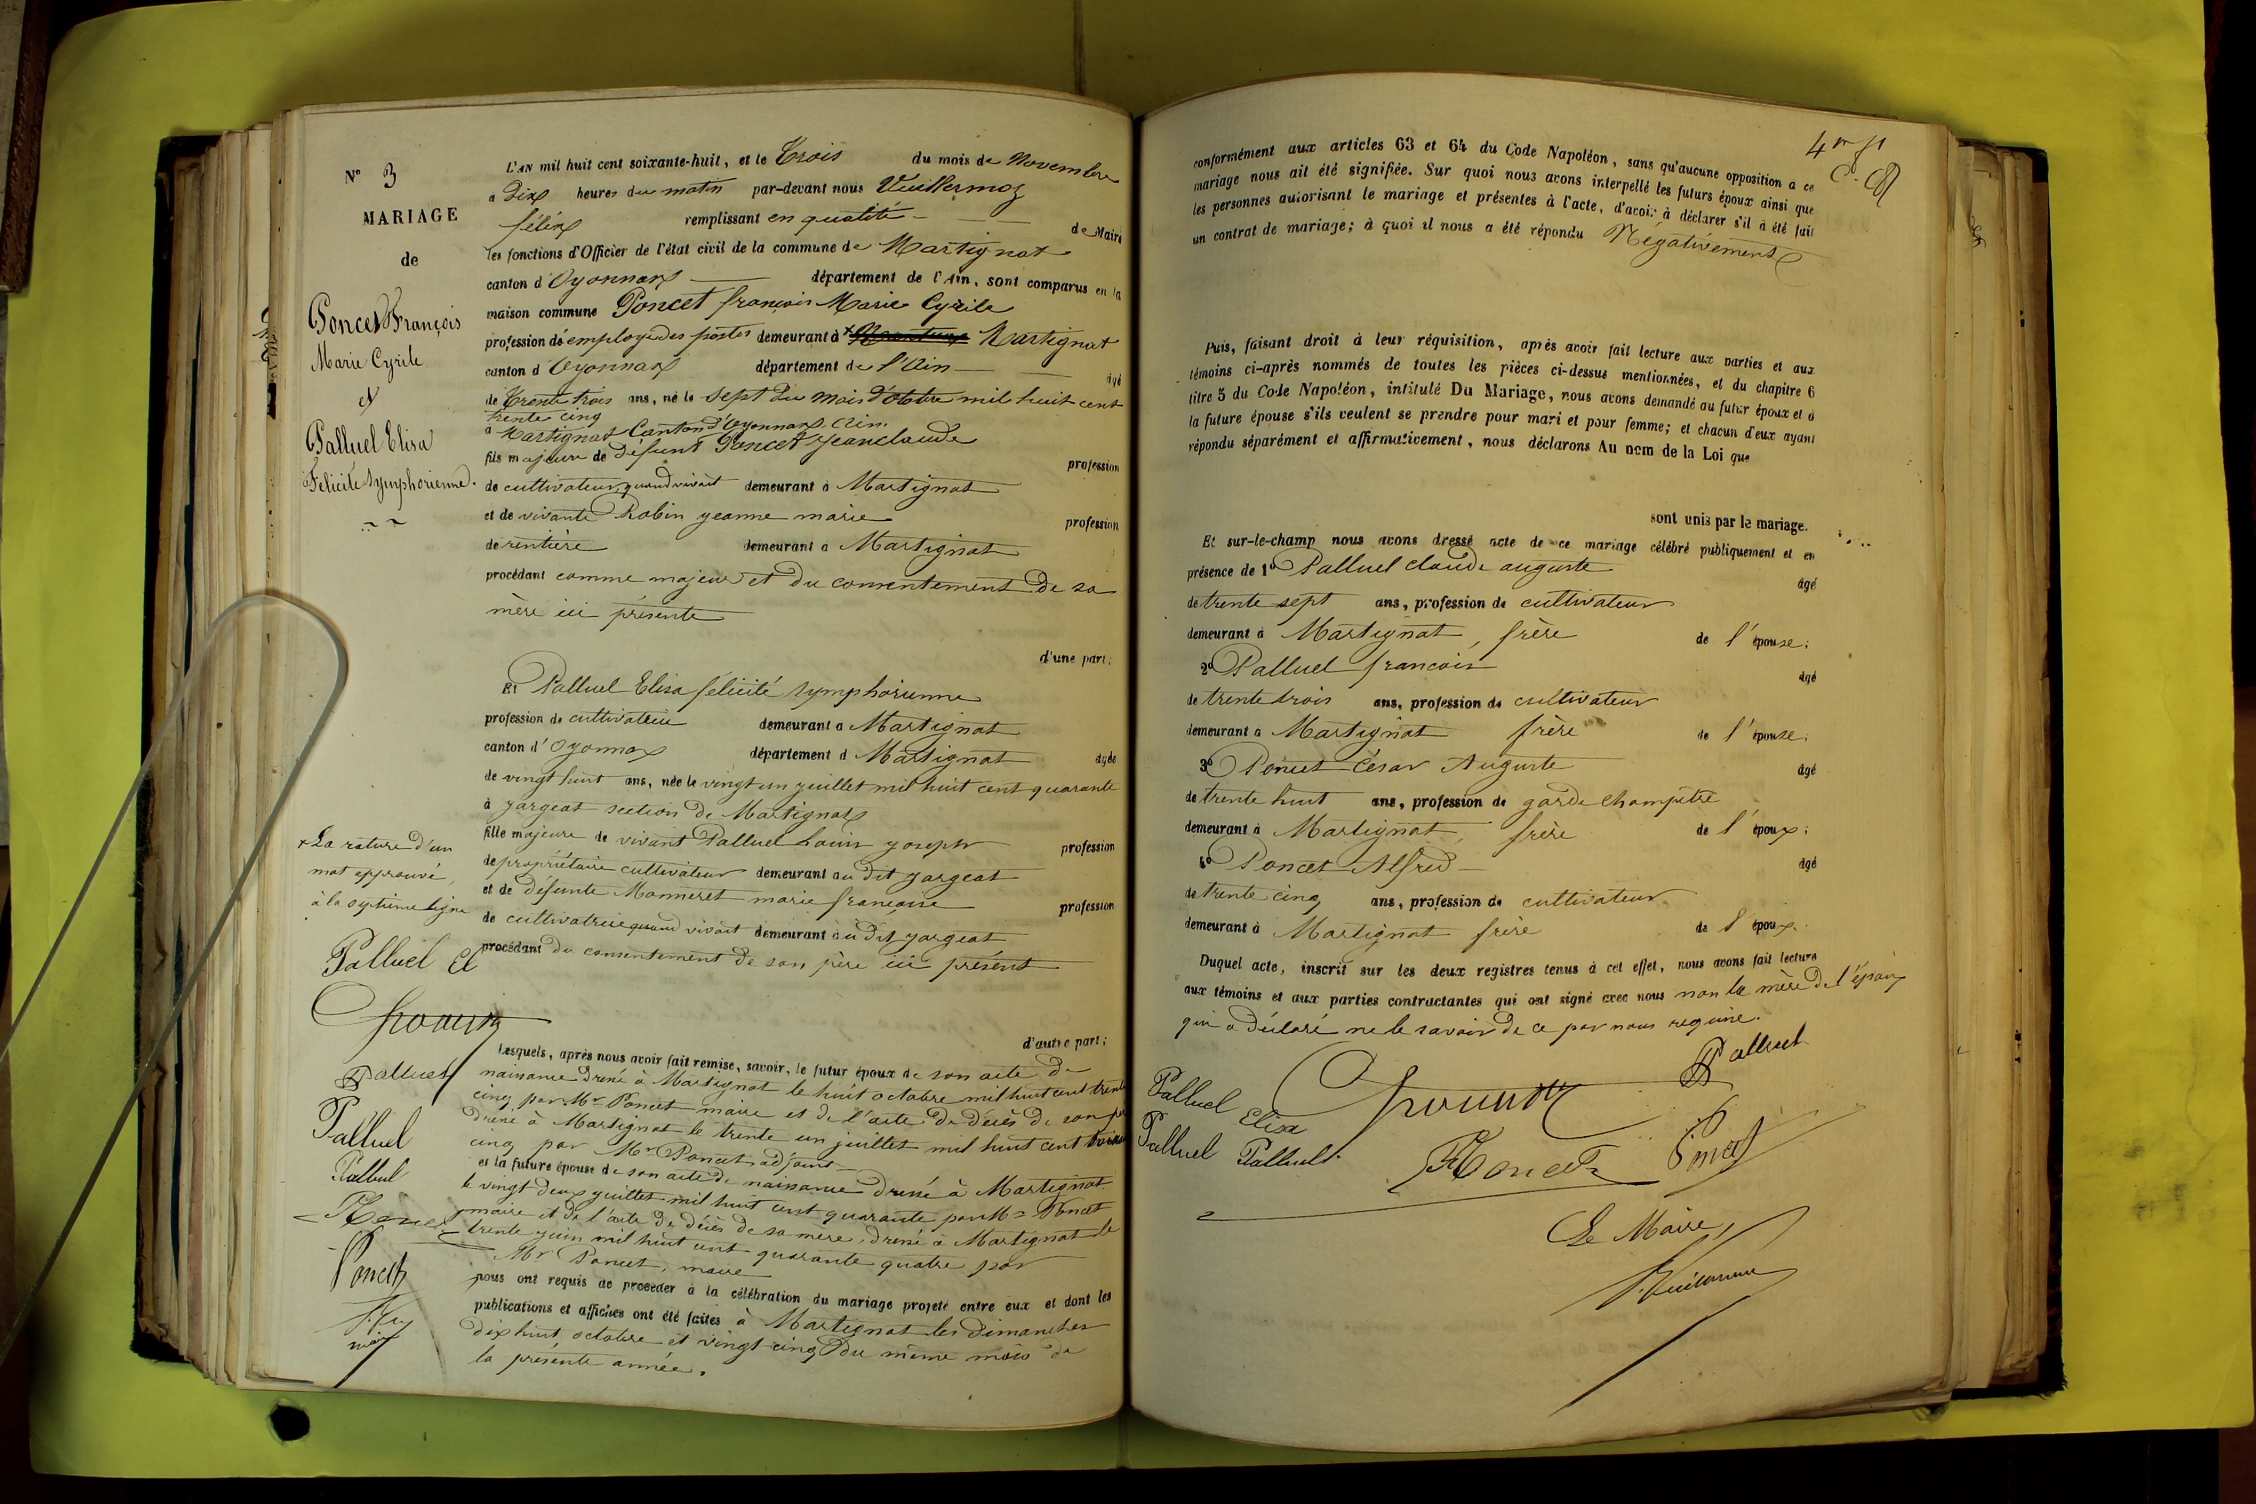 N° 3
MARIAGE
de
Poncet François
Marie Cyrile
et
Palluel Elisa
Félicité Symphorienne.
L'AN mil huit cent soixante-huit, et le Trois du mois de Novembre
a Dix heures du matin par-devant nous Vuillermoz
félix remplissant en qualité - de Maire
les fonctions d'Officier de l'état civil de la commune de Martignat
canton d'Oyonnax département de l'Ain, sont comparus en la
maison commune Poncet françois Marie Cyrile
profession de employé des postes demeurant à x Martignat
canton d'Oyonnax département de l'Ain âgé
de Trente trois ans, né le sept du mois d'octobre mil huit cent
trente cinq
a Martignat Canton d'Oyonnax Ain.
fils majeur de Défunt Poncet jeanclaude profession
de cultivateur, quand vivait demeurant à Martignat
et de vivante Robin jeanne marie profession
de rentière demeurant a Martignat
procédant comme majeur et du consentement de sa
mère ici présente
d'une part;
Et Palluel Elisa félicité symphorienne
profession de cultivatrice demeurant a Martignat
canton d'Oyonnax département d Martignat âgée
de vingt huit ans, née le vingt un juillet mil huit cent quarante
à jargeat section de Martignat
fille majeure de vivant Palluel Louis joseph profession
de propriétaire cultivateur demeurant au dit jargeat
et de défunte Monneret marie françoise profession
de cultivatrice quand vivait demeurant au dit jargeat
procédant du consentement de son père ici présent
d'autre part;
x La rature d'un
mot approuvé,
à la septième ligne
Palluel El
Palluel
Palluel
Palluel
Poncet
Poncet
Lesquels, après nous avoir fait remise, savoir, le futur époux de son acte de
naissance dressé à Martignat le huit octobre mil huit cent trente
cinq par Mr Poncet maire et de l'acte de décès de son père
dressé à Martignat le trente un juillet mil huit cent
cinq par Mr Poncet adjoint
et la future épouse de son acte de naissance dressé à Martignat
le vingt deux juillet mil huit cent quarante par Mr Poncet
maire et de l'acte de décès de sa mère, dressé à Martignat le
trente juin mil huit cent quarante quatre par
Mr Poncet, maire
nous ont requis de procéder à la célébration du mariage projeté entre eux et dont les
publications et affiches ont été faites à Martignat les dimanches
dix huit octobre et vingt cinq du même mois de
la présente année.
conformément aux articles 63 et 64 du Code Napoléon, sans qu'aucune opposition a ce
mariage nous ait été signifiée. Sur quoi nous avons interpellé les futurs époux ainsi que
les personnes autorisant le mariage et présentes à l'acte, d'avoir à déclarer s'il a été fait
un contrat de mariage; à quoi il nous a été répondu Négativement
Puis, faisant droit à leur réquisition, après avoir fait lecture aux parties et aux
témoins ci-après nommés de toutes les pièces ci-dessus mentionnées, et du chapitre 6
titre 5 du Code Napoléon, intitulé Du Mariage, nous avons demandé au futur époux et à
la future épouse s'ils veulent se prendre pour mari et pour femme; et chacun d'eux ayant
répondu séparément et affirmativement, nous déclarons Au nom de la Loi que
sont unis par le mariage.
Et sur-le-champ nous avons dressé acte de ce mariage célébré publiquement et en
présence de 1° Palluel claude auguste âgé
de trente sept ans, profession de cultivateur
demeurant à Martignat, frère de l'épouse;
2° Palluel françois âgé
de trente trois ans, profession de cultivateur
demeurant a Martignat frère de l'épouse;
3° Poncet César Auguste âgé
de trente huit ans, profession de garde champêtre
demeurant à Martignat, frère de l'époux;
4° Poncet Alfred âgé
de trente cinq ans, profession de cultivateur
demeurant à Martignat frère de l'époux.
Duquel acte, inscrit sur les deux registres tenus à cet effet, nous avons fait lecture
aux témoins et aux parties contractantes qui ont signé avec nous non la mère de l'époux
qui a déclaré ne le savoir de ce par nous requise.
Palluel
Palluel Elisa
Palluel Palluel
Poncet Poncet
Le Maire,